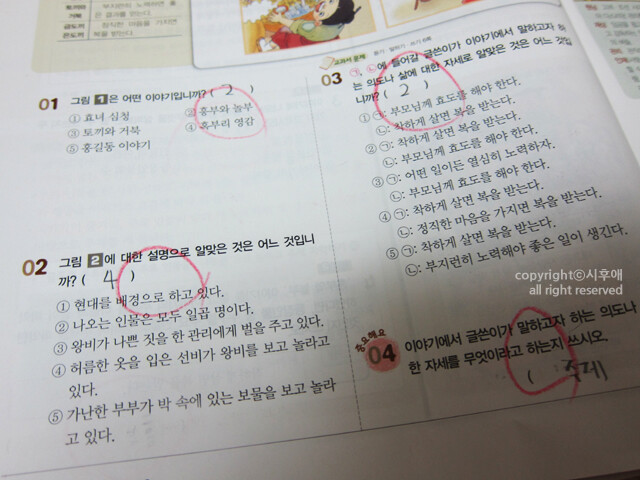 토끼와
거북
부지런히 노력하면 좋
은 결과를 얻는다.
금도끼
은도끼
정직한 마음을 가지면
복을 받는다.
01 그림 1은 어떤 이야기입니까? ( 2 )
① 효녀 심청 ② 흥부와 놀부
③ 토끼와 거북 ④ 혹부리 영감
⑤ 홍길동 이야기
02 그림 2에 대한 설명으로 알맞은 것은 어느 것입니
까? ( 4 )
① 현대를 배경으로 하고 있다.
② 나오는 인물은 모두 일곱 명이다.
③ 왕비가 나쁜 짓을 한 관리에게 벌을 주고 있다.
④ 허름한 옷을 입은 선비가 왕비를 보고 놀라고
있다.
⑤ 가난한 부부가 박 속에 있는 보물을 보고 놀라
고 있다.
교과서 문제 듣기·말하기·쓰기 6쪽
03 ㉠, ㉡에 들어갈 글쓴이가 이야기에서 말하고자 하
는 의도나 삶에 대한 자세로 알맞은 것은 어느 것입
니까? ( 2 )
① ㉠: 부모님께 효도를 해야 한다.
㉡: 착하게 살면 복을 받는다.
② ㉠: 착하게 살면 복을 받는다.
㉡: 부모님께 효도를 해야 한다.
③ ㉠: 어떤 일이든 열심히 노력하자.
㉡: 부모님께 효도를 해야 한다.
④ ㉠: 착하게 살면 복을 받는다.
㉡: 정직한 마음을 가지면 복을 받는다.
⑤ ㉠: 착하게 살면 복을 받는다.
㉡: 부지런히 노력해야 좋은 일이 생긴다.
copyrightⓒ시후애
all right reserved
중요해요
04 이야기에서 글쓴이가 말하고자 하는 의도나
한 자세를 무엇이라고 하는지 쓰시오.
( 주제